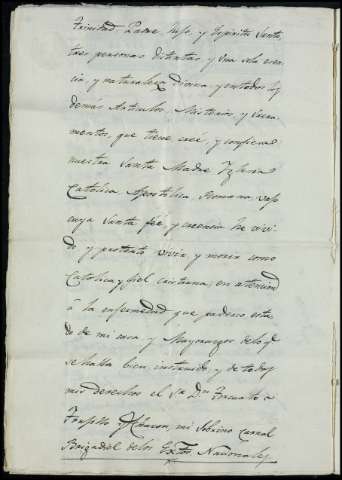 Trinidad Padre, hijo, y Espiritu Santo,
tres personas distintas y una sola esen-
cia, y naturaleza Divina y en todos los
demás Articulos, Misterios, y Sacra-
mentos, que tiene creé, y confiesa
nuestra Santa Madre Yglesia
Catolica Apostolica Romana vajo
cuya Santa fée y creencia he vivi-
do y protesto vivir y morir como
Catolica y fiel cristiana, en atencion
á la enfermedad que padezco esta-
do de mi casa y Mayorazgos de lo qe
se halla bien instruido y de todos
mis derechos el Sr Dn Facundo
Trujillo y Chacon, mi Sobrino carnal
Brigadiel de los Extos Nacionales